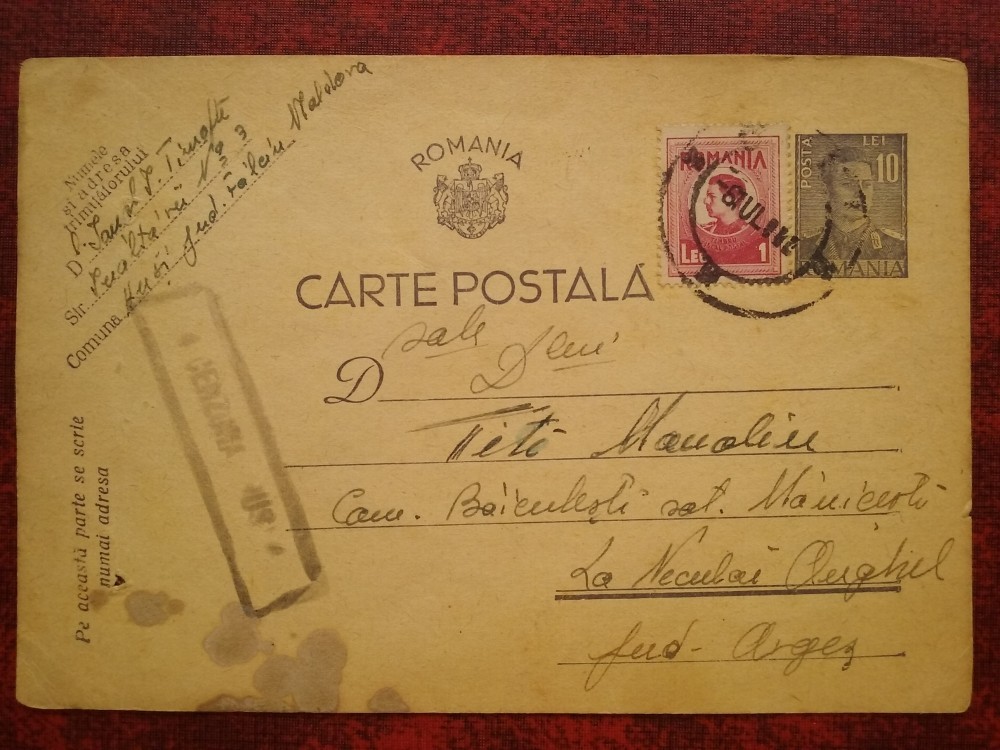 Numele
și adresa
trimițătorului
D
Str. No 3
Comuna Huși Jud. Fălciu Moldova
ROMANIA
CARTE POSTALĂ
ROMANIA
LEI 1
POSTA LEI 10
MANIA
CENZURAT HUȘI
D sale Dlui
Titi Manoliu
Com. Băiculești sat. Mănicești
La Neculai Anghel
Jud- Argeș
Pe această parte se scrie
numai adresa